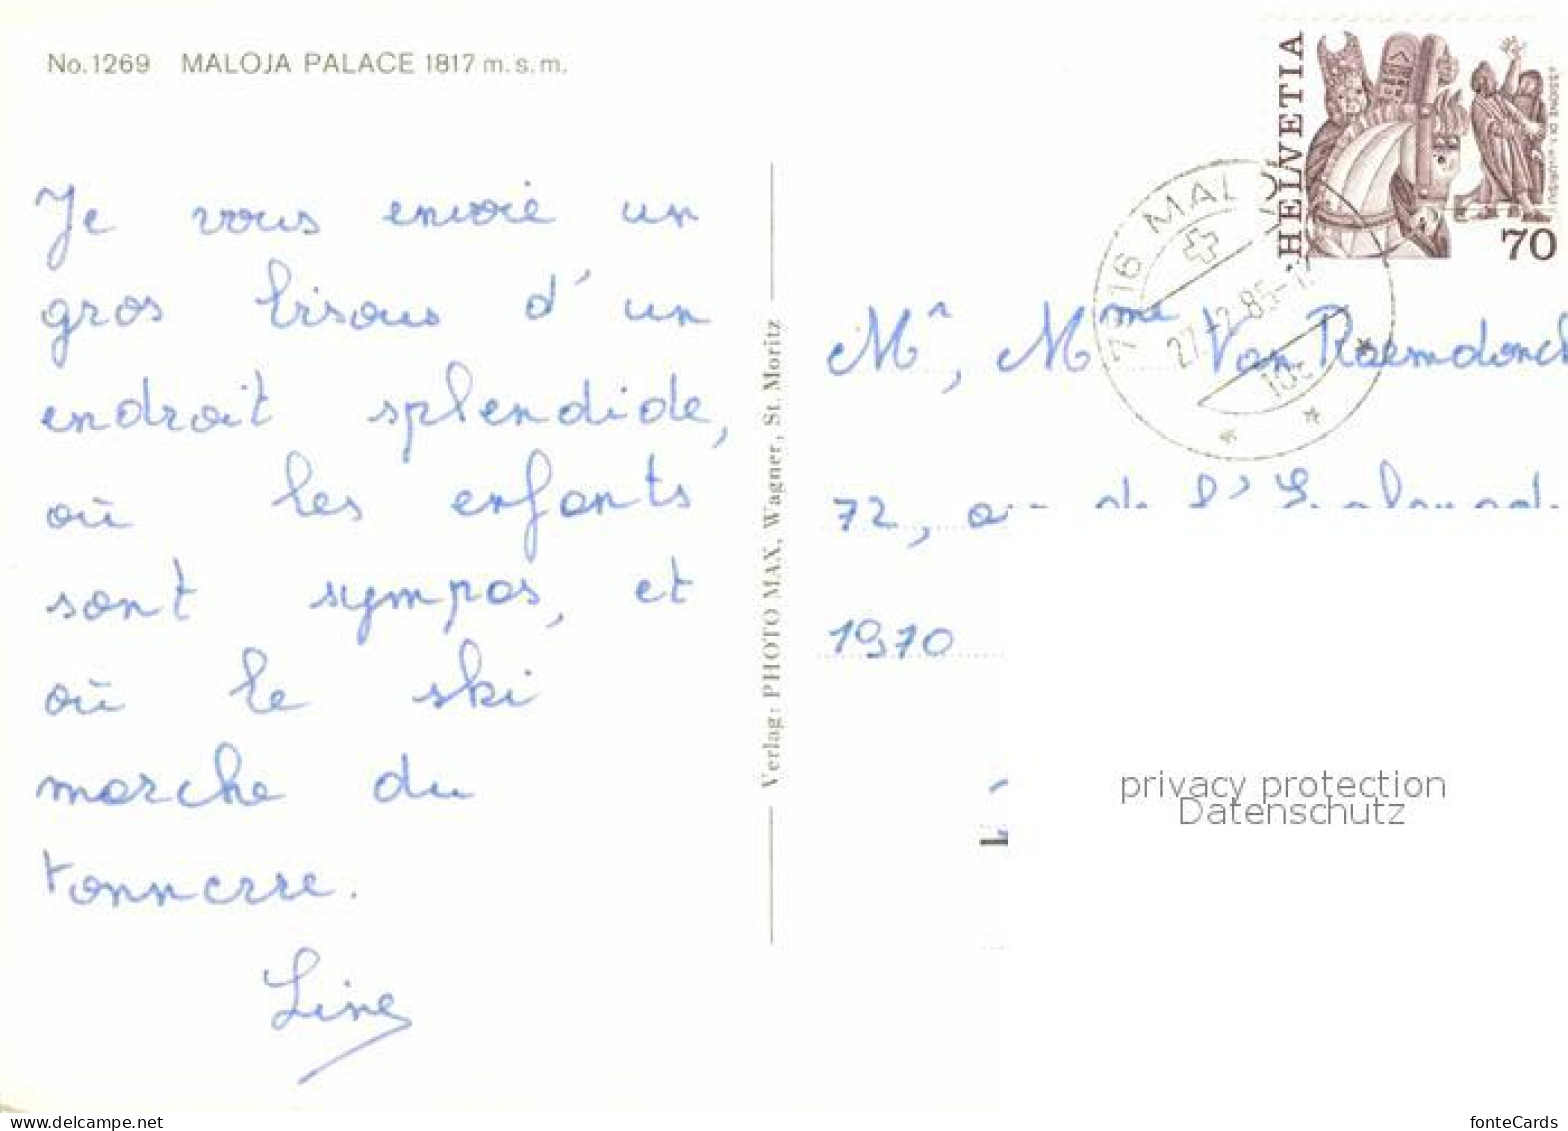 No.1269 MALOJA PALACE 1817 m.s.m.
Je vous envoie un
gros bisous d'un
endroit splendide,
où les enfants
sont sympas, et
où le ski
marche du
tonnerre.
Line
Verlag: PHOTO MAX, Wagner, St. Moritz
HELVETIA
70
27.-2.85-1
10c
Mr, Mme Van Raemdonck
72, de l'
1970
privacy protection
Datenschutz
www.delcampe.net
fonteCards